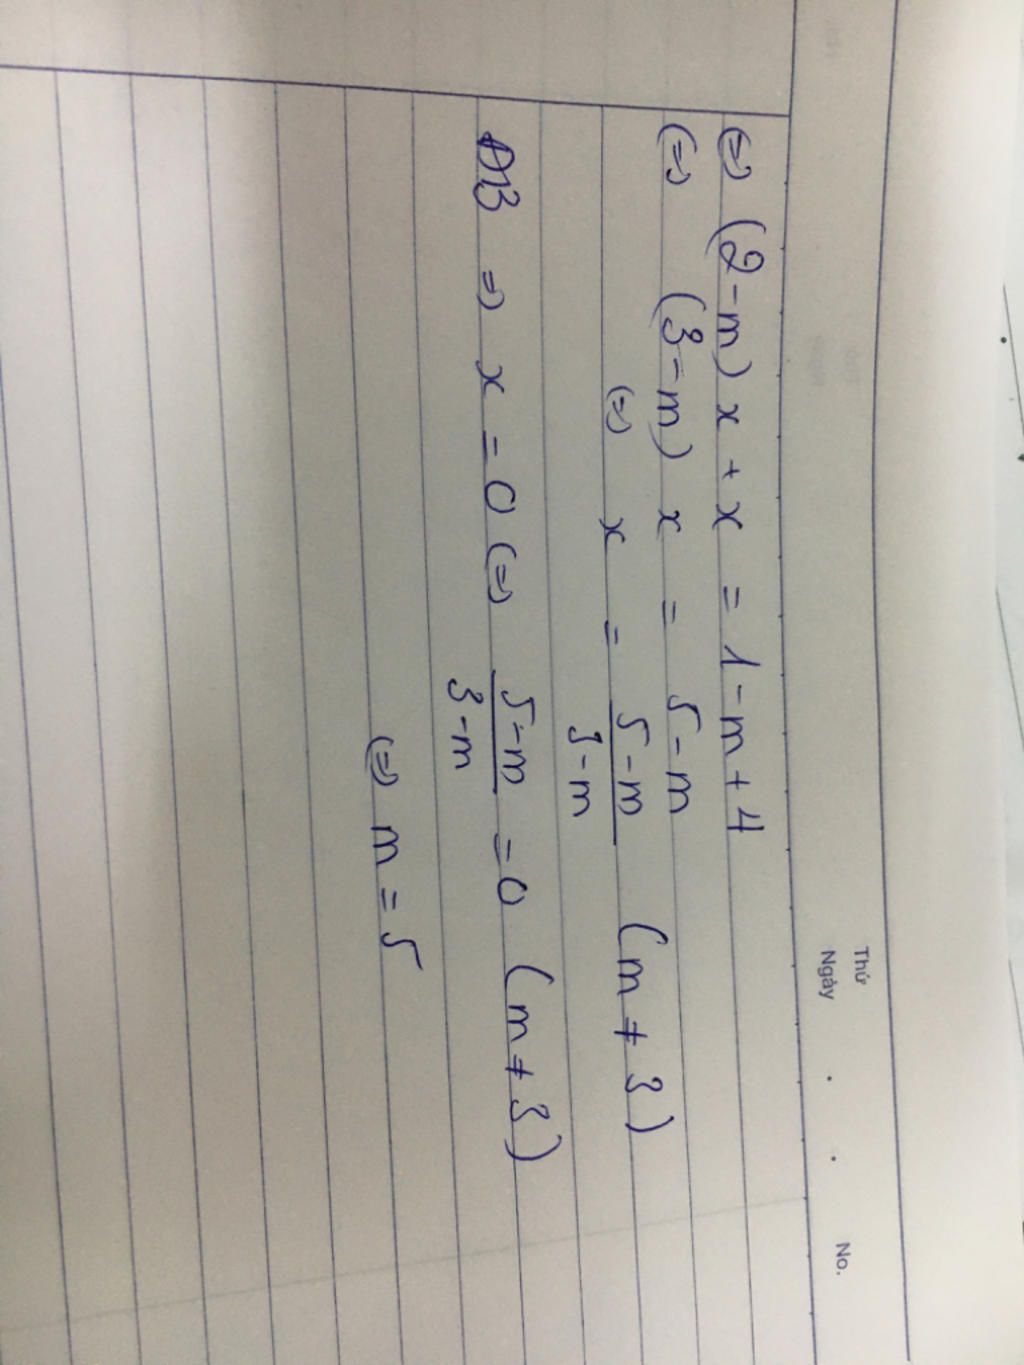 Thứ
Ngày . . No.
(=) (2-m) x + x = 1 - m + 4
(=) (3-m) x = 5 - m
(=) x = \frac{5-m}{3-m} (m ≠ 3)
=) x = 0 (=) \frac{5-m}{3-m} = 0 (m ≠ 3)
(=) m = 5